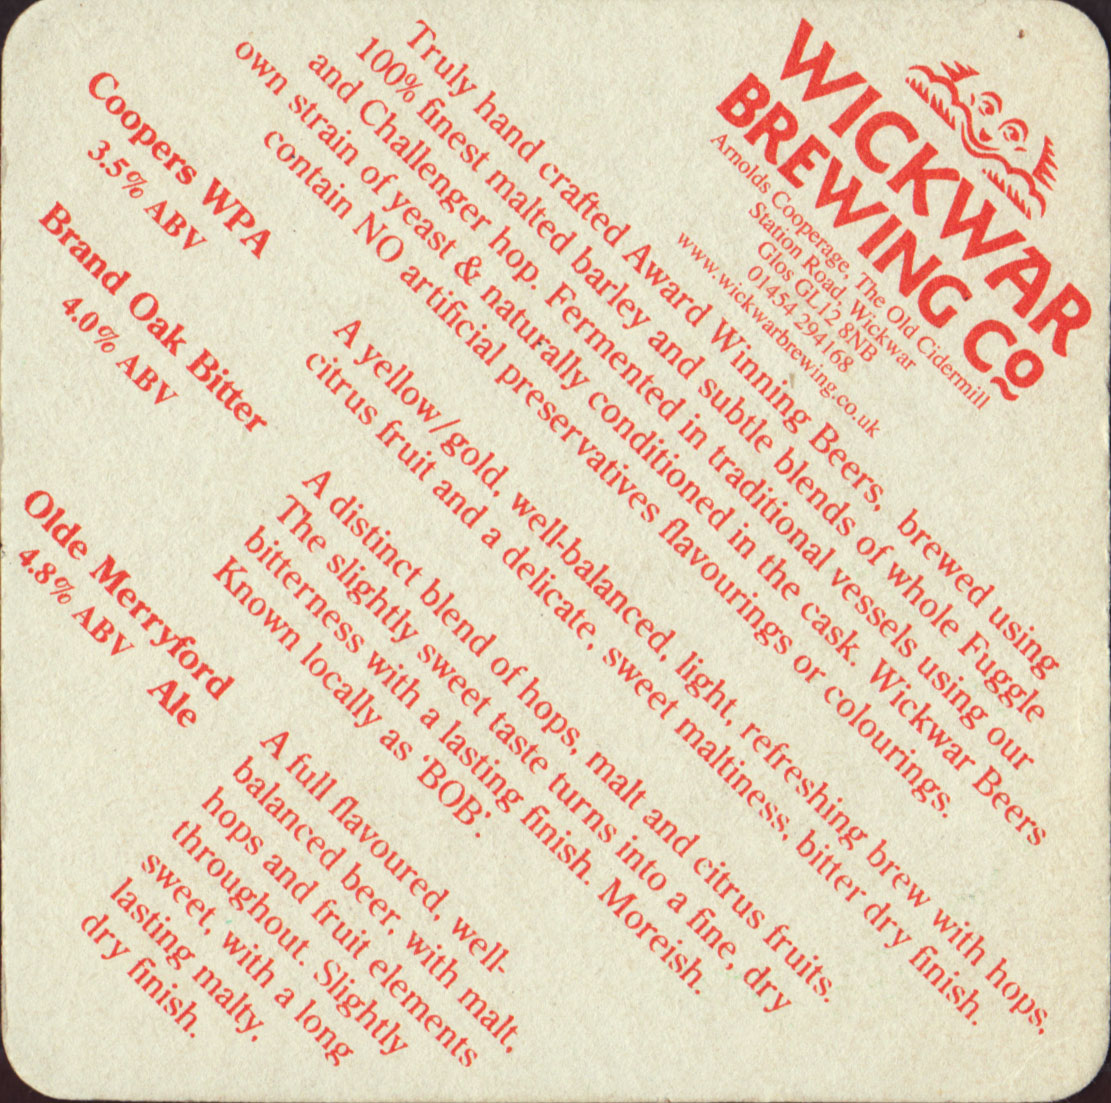 WICKWAR
BREWING CO
Arnolds Cooperage, The Old Cidermill
Station Road, Wickwar
Glos GL12 8NB
01454 294168
www.wickwarbrewing.co.uk
Truly hand crafted Award Winning Beers, brewed using
100% finest malted barley and subtle blends of whole Fuggle
and Challenger hop. Fermented in traditional vessels using our
own strain of yeast & naturally conditioned in the cask. Wickwar Beers
contain NO artificial preservatives flavourings or colourings.
Coopers WPA
3.5% ABV
A yellow/gold, well-balanced, light, refreshing brew with hops,
citrus fruit and a delicate, sweet maltiness, bitter dry finish.
Brand Oak Bitter
4.0% ABV
A distinct blend of hops, malt and citrus fruits.
The slightly sweet taste turns into a fine, dry
bitterness with a lasting finish. Moreish.
Known locally as 'BOB'.
Olde Merryford
Ale
4.8% ABV
A full flavoured, well-
balanced beer, with malt,
hops and fruit elements
throughout. Slightly
sweet, with a long
lasting malty,
dry finish.